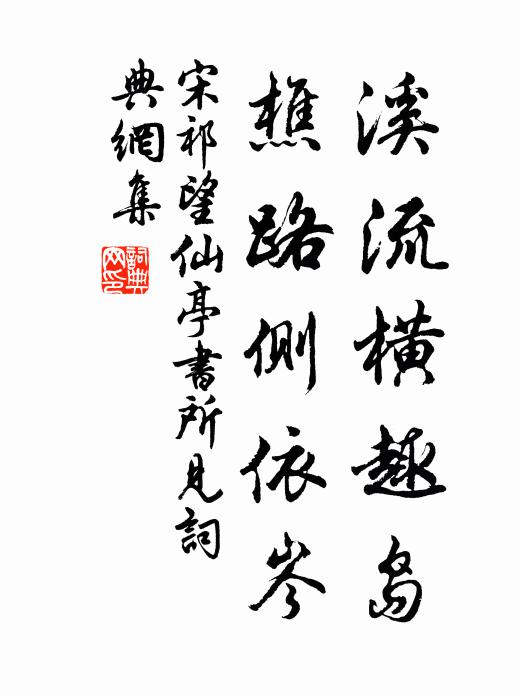 溪流横趣島
樵路側依岑
宋祁望仙亭書所見詞
典網集
詞典網印